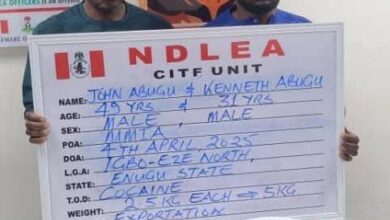 OFFICERS IS AN OFFENCE
NDLEA
CITF UNIT
NAME: JOHN ABUGU & KENNETH ABUGU
AGE: 49 YRS & 31 YRS
SEX: MALE, MALE
POA: MMIA
DOA: 4TH APRIL, 2025
L.G.A: IGBO-EZE NORTH,
STATE: ENUGU STATE
T.O.D: COCAINE
WEIGHT: 2.5KG EACH ⇒ 5KG
EXPORTATION